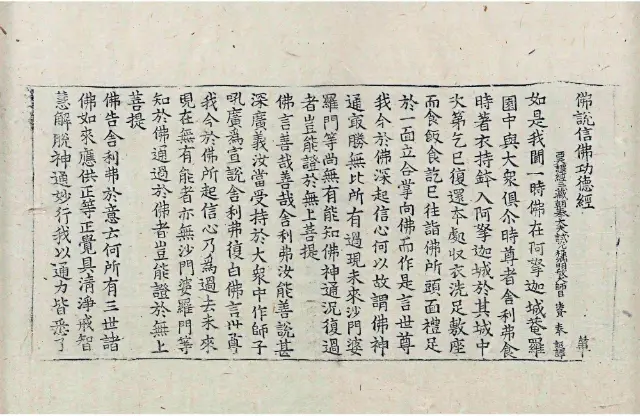 佛說信佛功德經
譯經三藏朝奉大夫試光祿卿明教大師臣法賢奉 詔譯
如是我聞一時佛在阿拏迦城菴羅
園中與大衆俱尒時尊者舍利弗食
時著衣持鉢入阿拏迦城於其城中
次第乞已復還本處收衣洗足敷座
而食飯食訖已往詣佛所頭面禮足
於一面立合掌向佛而作是言世尊
我今於佛深起信心何以故謂佛神
通最勝無比所有過現未來沙門婆
羅門等尚無有能知佛神通況復過
者豈能證於無上菩提
佛言善哉善哉舍利弗汝能善說甚
深廣義汝當受持於大衆中作師子
吼廣爲宣說舍利弗復白佛言世尊
我今於佛所起信心乃爲過去未來
現在無有能者亦無沙門婆羅門等
知於佛通過於佛者豈能證於無上
菩提
佛告舍利弗於意云何所有三世諸
佛如來應供正等正覺具清淨戒智
慧解脫神通妙行我以通力皆悉了